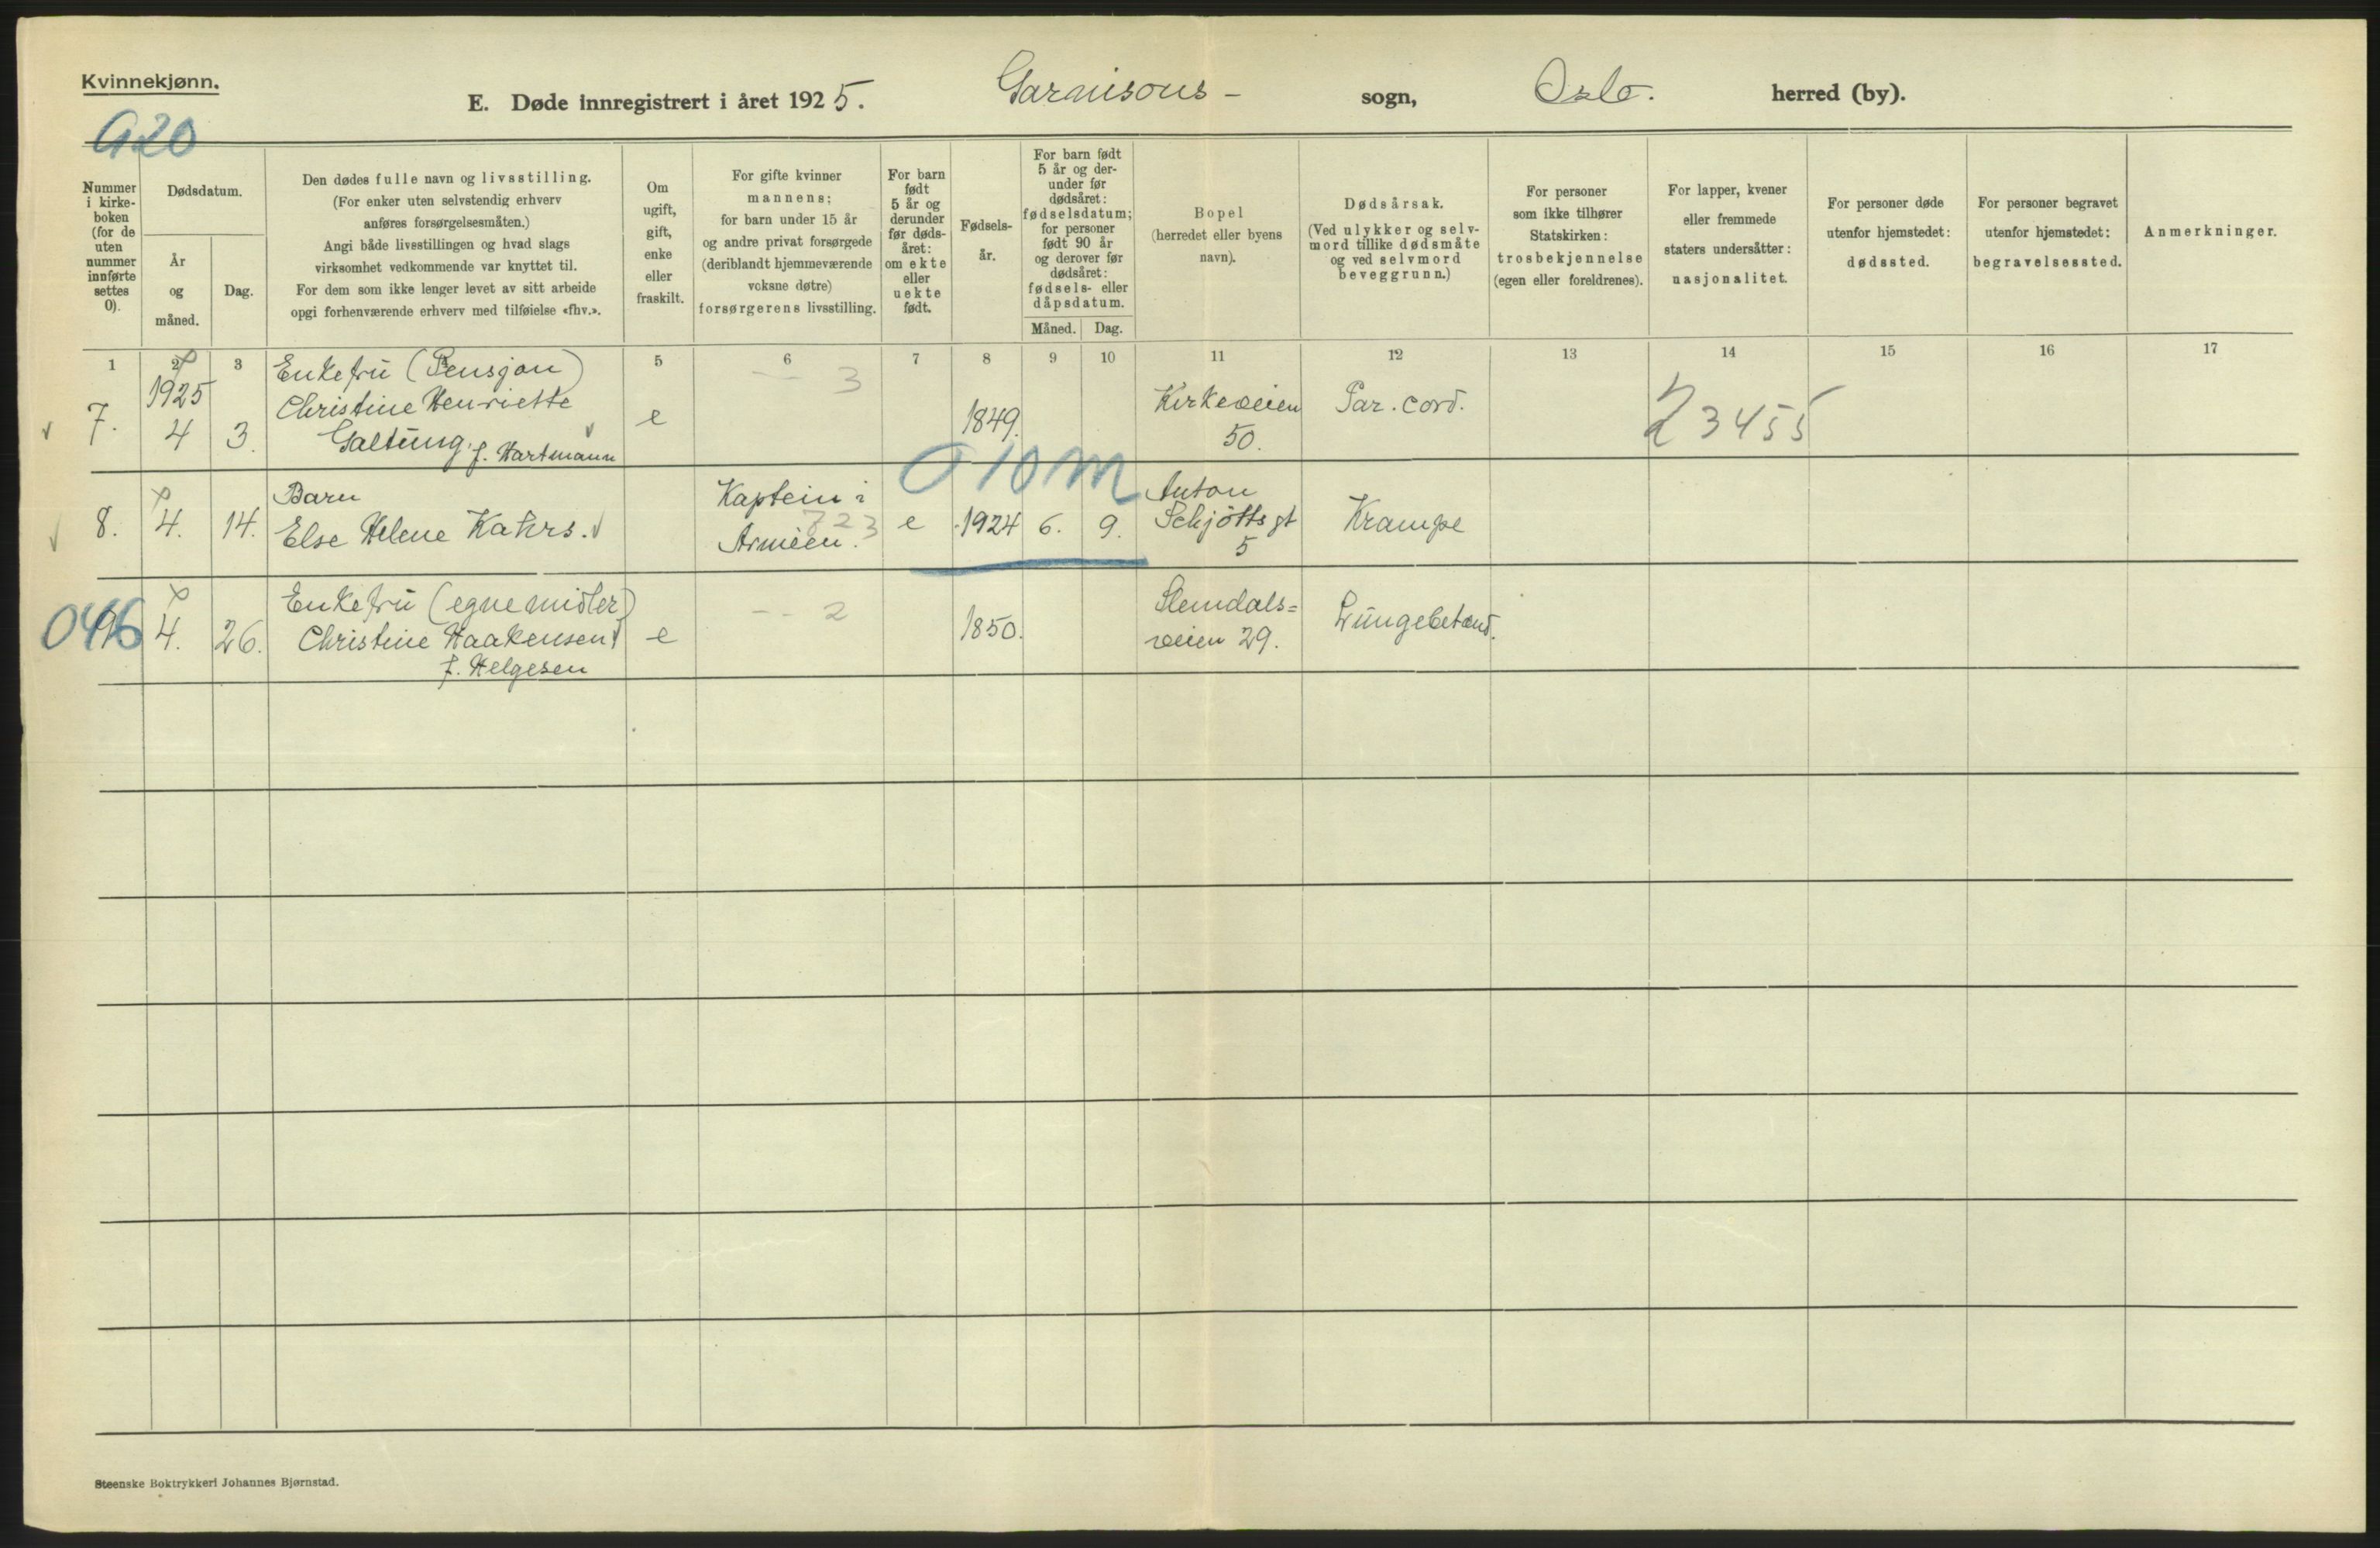 Kvinnekjønn.
E. Døde innregistrert i året 1925. Garnisons- sogn, Oslo. herred (by).
G20
Nummer i kirke-boken (for de uten nummer innførte settes 0).
Dødsdatum.
År og måned.
Dag.
Den dødes fulle navn og livsstilling.
(For enker uten selvstendig erhverv
anføres forsørgelsesmåten.)
Angi både livsstillingen og hvad slags
virksomhet vedkommende var knyttet til.
For dem som ikke lenger levet av sitt arbeide
opgi forhenværende erhverv med tilføielse «fhv.».
Om
ugift,
gift,
enke
eller
fraskilt.
For gifte kvinner
mannens;
for barn under 15 år
og andre privat forsørgede
(deriblandt hjemmeværende
voksne døtre)
forsørgerens livsstilling.
For barn
født
5 år og
derunder
før døds-
året:
om ekte
eller
uekte
født.
Fødsels-
år.
For barn født
5 år og der-
under før
dødsåret:
fødselsdatum;
for personer
født 90 år
og derover før
dødsåret:
fødsels- eller
dåpsdatum.
Måned. Dag.
Bopel
(herredet eller byens
navn).
Dødsårsak.
(Ved ulykker og selv-
mord tillike dødsmåte
og ved selvmord
beveggrunn.)
For personer
som ikke tilhører
Statskirken:
trosbekjennelse
(egen eller foreldrenes).
For lapper, kvener
eller fremmede
staters undersåtter:
nasjonalitet.
For personer døde
utenfor hjemstedet:
dødssted.
For personer begravet
utenfor hjemstedet:
begravelsessted.
Anmerkninger.
1 2 3 5 6 7 8 9 10 11 12 13 14 15 16 17
Enkefru (Pensjon)
1925 Christine Henriette
7. 4 3. Galtung, f. Hartmann e -- 3 1849. Kirkeveien 50. Par. cord. 23455
010m
Barn
8. 4. 14. Else Helene Kahrs. Kaptein i Armeen. 723 e 1924 6. 9. Anton Schjøtts gt 5 Krampe
Enkefru (egne midler)
046 4. 26. Christine Haakensen e -- 2 1850. Slemdals=veien 29. Lungebetend.
f. Helgesen
Steenske Boktrykkeri Johannes Bjørnstad.